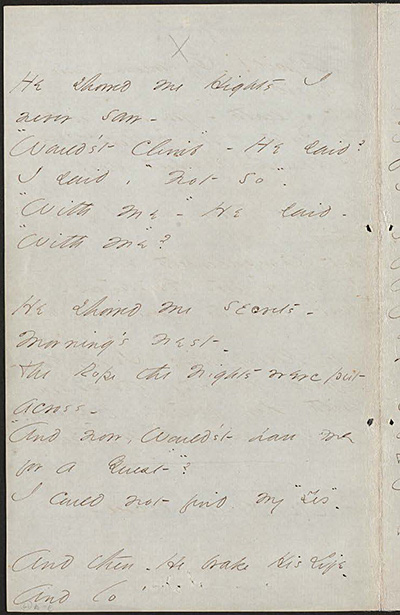 He showed me Hights I
never saw -
"Would'st Climb" - He said?
I said, "Not so".
"With me" - He said -
"With me"?

He showed me secrets -
Morning's nest -
The Rope the Nights were put
across -
"And now, Would'st have me
for a Guest"?
I could not find my "Yes" -

And then - He brake His Life -
And lo